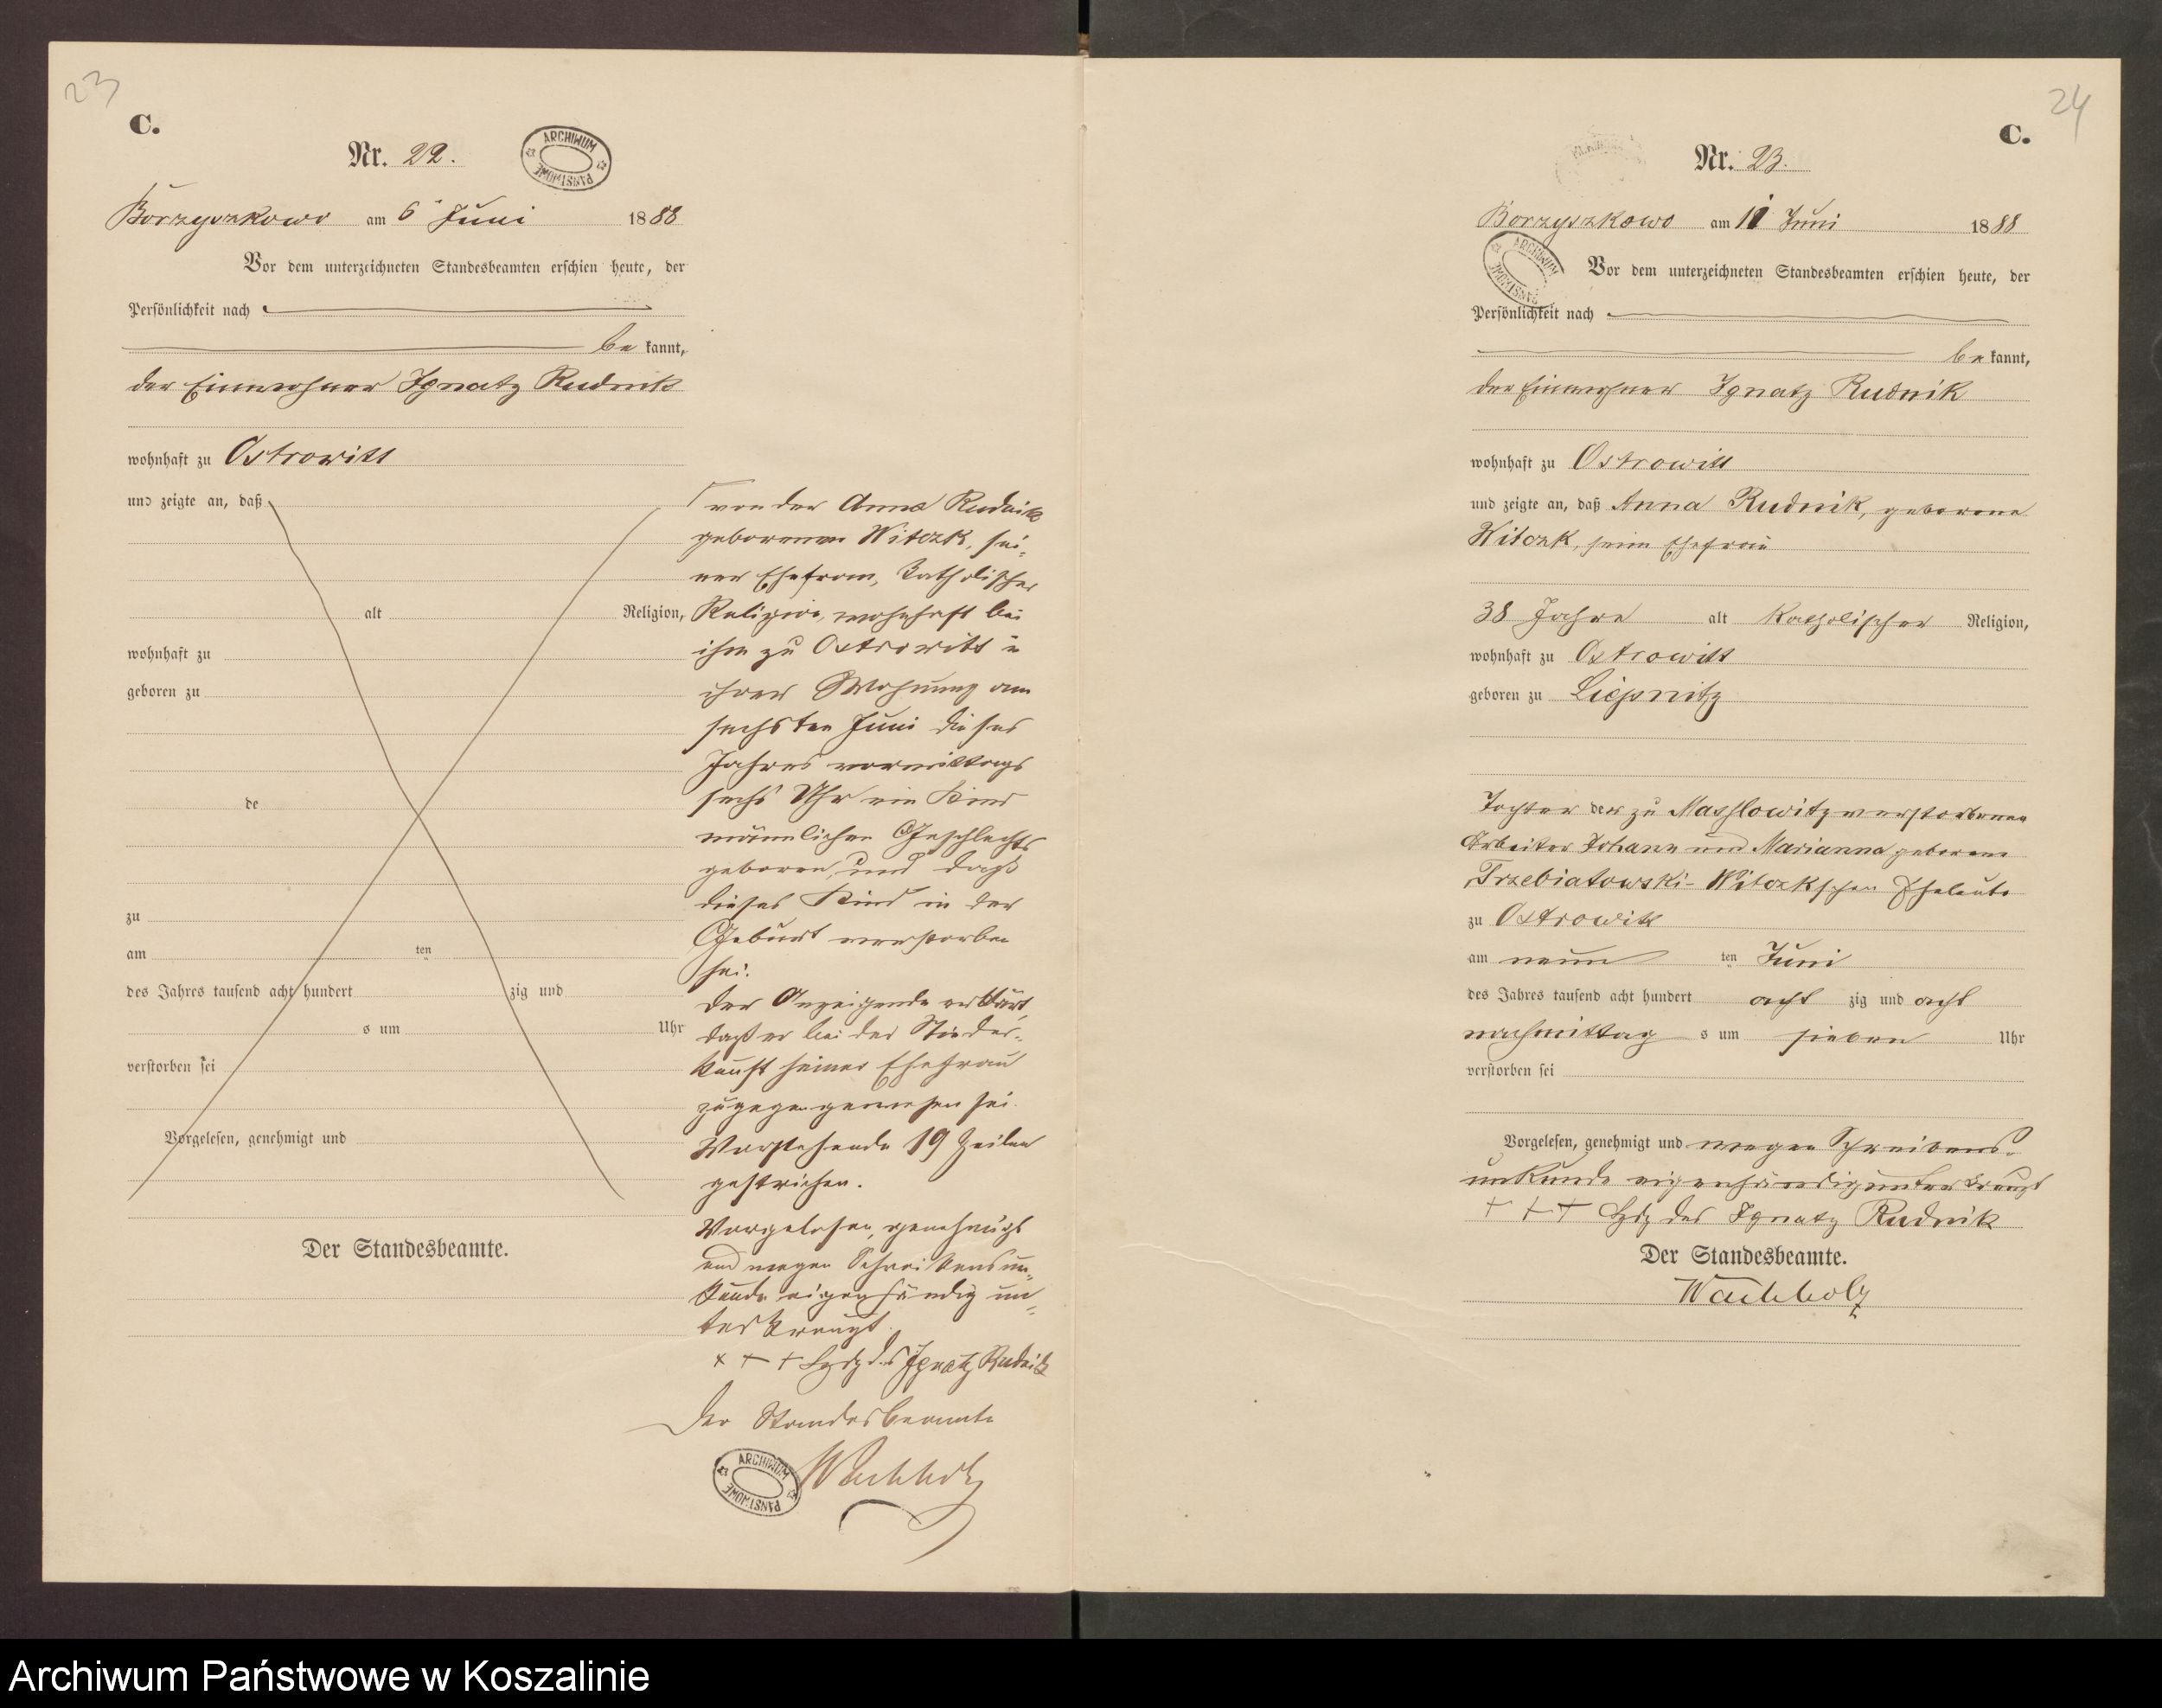 23
C.
Nr. 22.
ARCHIWUM PAŃSTWOWE
Borzyszkowo am 6 Juni 1888
Vor dem unterzeichneten Standesbeamten erschien heute, der
Persönlichkeit nach
be kannt,
der Einwohner Ignatz Rudnik
wohnhaft zu Ostrowitt
und zeigte an, daß
alt Religion,
wohnhaft zu
geboren zu
de
zu
am ten
des Jahres tausend acht hundert zig und
s um Uhr
verstorben sei
Vorgelesen, genehmigt und
Der Standesbeamte.
von der Anna Rudnik
geborenen Witczk, sei-
ner Ehefrau, katholischer
Religion, wohnhaft bei
ihm zu Ostrowitt in
ihrer Wohnung am
sechsten Juni dieses
Jahres vormittags
sechs Uhr ein Kind
männlichen Geschlechts
geboren, und daß
dieses Kind in der
Geburt verstorben
sei.
Der Anzeigende erklärt,
daß er bei der Nieder-
kunft seiner Ehefrau
zugegen gewesen sei.
Vorstehende 19 Zeilen
gestrichen.
Vorgelesen, genehmigt
und wegen Schreibensun-
kunde eigenhändig un-
terkreuzt.
+ + + Hdz des Ignatz Rudnik
Der Standesbeamte
Wachholz
ARCHIWUM PAŃSTWOWE
24
C.
Nr. 23.
Borzyszkowo am 11 Juni 1888
ARCHIWUM PAŃSTWOWE
Vor dem unterzeichneten Standesbeamten erschien heute, der
Persönlichkeit nach
be kannt,
der Einwohner Ignatz Rudnik
wohnhaft zu Ostrowitt
und zeigte an, daß Anna Rudnik, geborene
Witczk, seine Ehefrau
38 Jahre alt katholischer Religion,
wohnhaft zu Ostrowitt
geboren zu Liepnitz
Tochter der zu Masslowitz verstorbenen
Arbeiter Johann und Marianna geborene
Trzebiatowski- Witczkschen Eheleute
zu Ostrowitt
am neun ten Juni
des Jahres tausend acht hundert acht zig und acht
nachmittag s um sieben Uhr
verstorben sei
Vorgelesen, genehmigt und wegen Schreibens-
unkunde eigenhändig unterkreuzt
+ + + Hdz des Ignatz Rudnik
Der Standesbeamte.
Wachholz
Archiwum Państwowe w Koszalinie